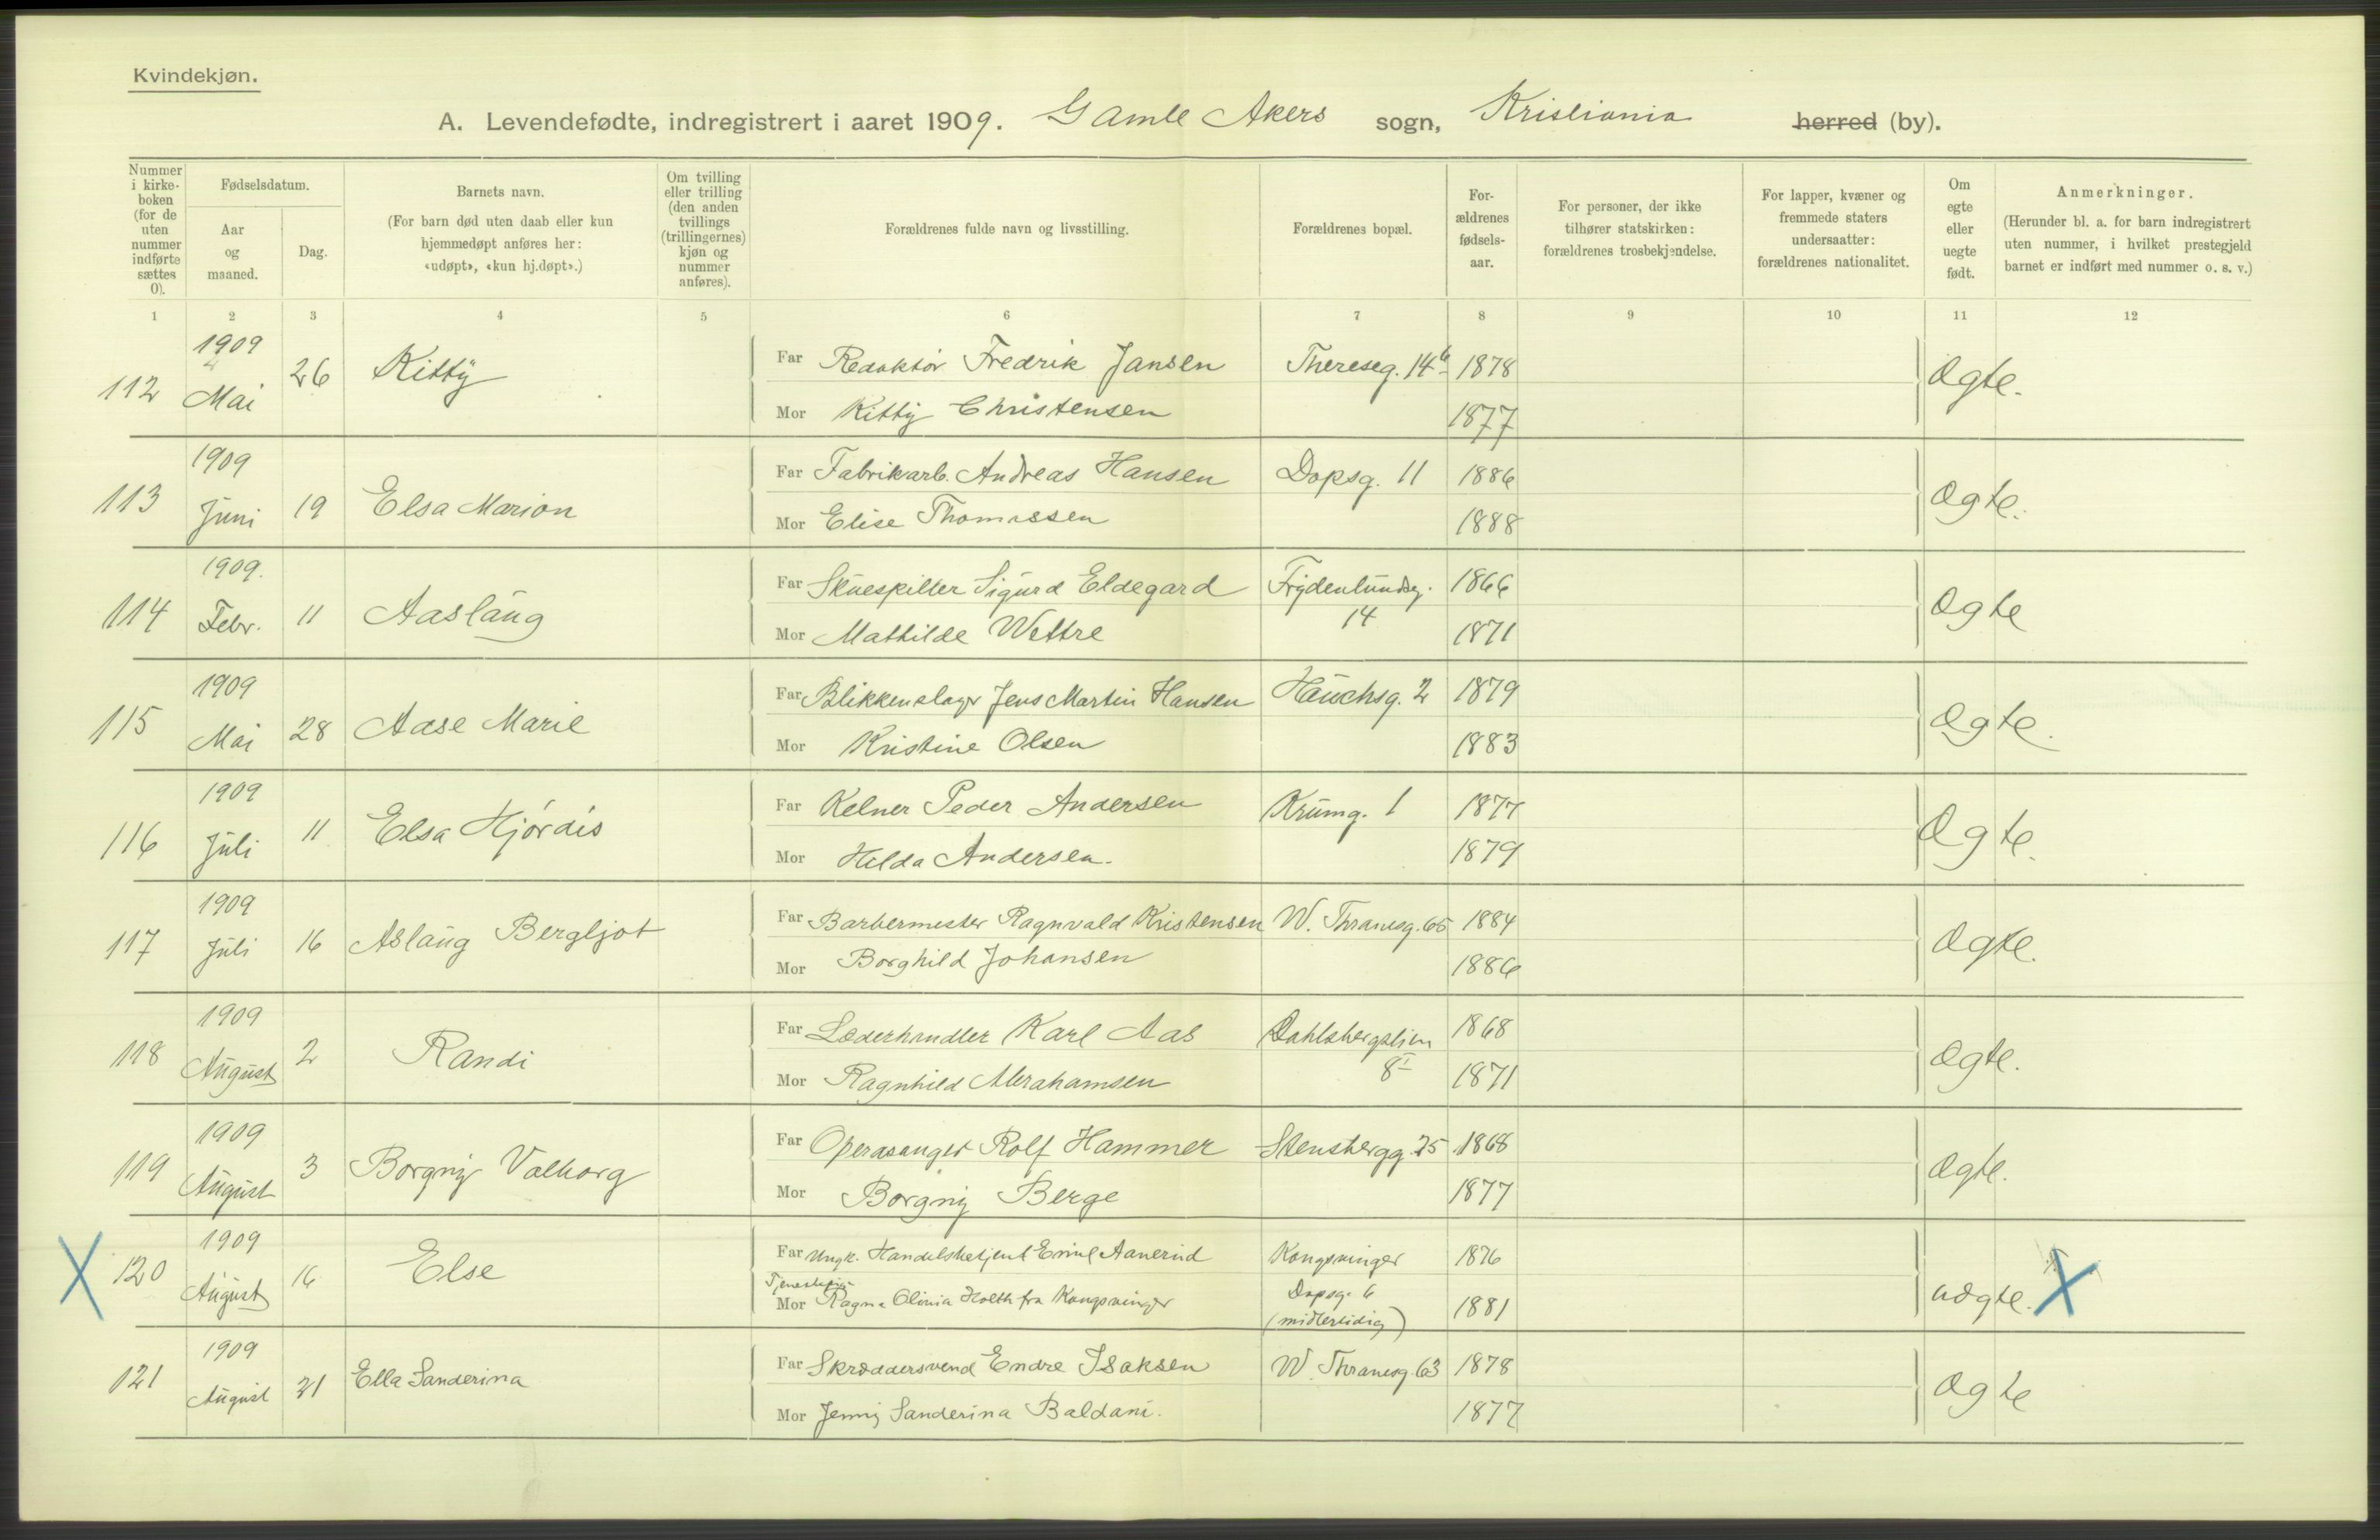 Kvindekjøn.
A. Levendefødte, indregistrert i aaret 1909. Gamle Akers sogn, Kristiania herred (by).
Nummer i kirke-boken (for de uten nummer indførte sættes 0).
Fødselsdatum.
Aar og maaned.
Dag.
Barnets navn.
(For barn død uten daab eller kun hjemmedøpt anføres her: «udøpt», «kun hj.døpt».)
Om tvilling eller trilling (den anden tvillings (trillingernes) kjøn og nummer anføres).
Forældrenes fulde navn og livsstilling.
Forældrenes bopæl.
For-ældrenes fødsels-aar.
For personer, der ikke tilhører statskirken: forældrenes trosbekjendelse.
For lapper, kvæner og fremmede staters undersaatter: forældrenes nationalitet.
Om egte eller uegte født.
Anmerkninger.
(Herunder bl. a. for barn indregistrert uten nummer, i hvilket prestegjeld barnet er indført med nummer o. s. v.)
1 2 3 4 5 6 7 8 9 10 11 12
112 1909 Mai 26 Kitty Far Redaktör Fredrik Jansen Thereseg. 14b 1878 Ægte.
Mor Kitty Christensen 1877
113 1909 Juni 19 Elsa Marion Far Fabrikarb. Andreas Hansen Dopsg. 11 1886 Ægte.
Mor Elise Thomassen 1888
114 1909. Febr. 11 Aaslaug Far Skuespiller Sigurd Eldegard Frydenlundsg. 14 1866 Ægte
Mor Mathilde Wettre 1871
115 1909 Mai 28 Aase Marie Far Blikkenslager Jens Martin Hansen Hauchsg. 2 1879 Ægte.
Mor Kristine Olsen 1883
116 1909 Juli 11 Elsa Hjórdis Far Kelner Peder Andersen Krumg. 1 1877 Ægte.
Mor Hilda Andersen. 1879
117 1909 Juli 16 Aslaug Bergljot Far Barbermester Ragnvald Kristensen W. Thranesg. 65 1884 Ægte.
Mor Borghild Johansen 1886
118 1909 August 2 Randi Far Læderhandler Karl Aas Dahlsbergstien 8I 1868 Ægte.
Mor Ragnhild Abrahamsen 1871
119 1909 August 3 Borgny Valborg Far Operasanger Rolf Hammer Stensbergg. 25 1868 Ægte.
Mor Borgny Berge 1877
X 120 1909 August 16 Else Far Ungk. Handelsbetjent Emil Aanerud Kongsvinger 1876 uægte. X
Tjenestepige
Mor Ragna Olivia Holth fra Kongsvinger Dopsg. 6 (midlertidig) 1881
121 1909 August 21 Ella Sanderina Far Skræddersvend Endre Isaksen W. Thranesg. 63 1878 Ægte
Mor Jenny Sanderina Baldani. 1877